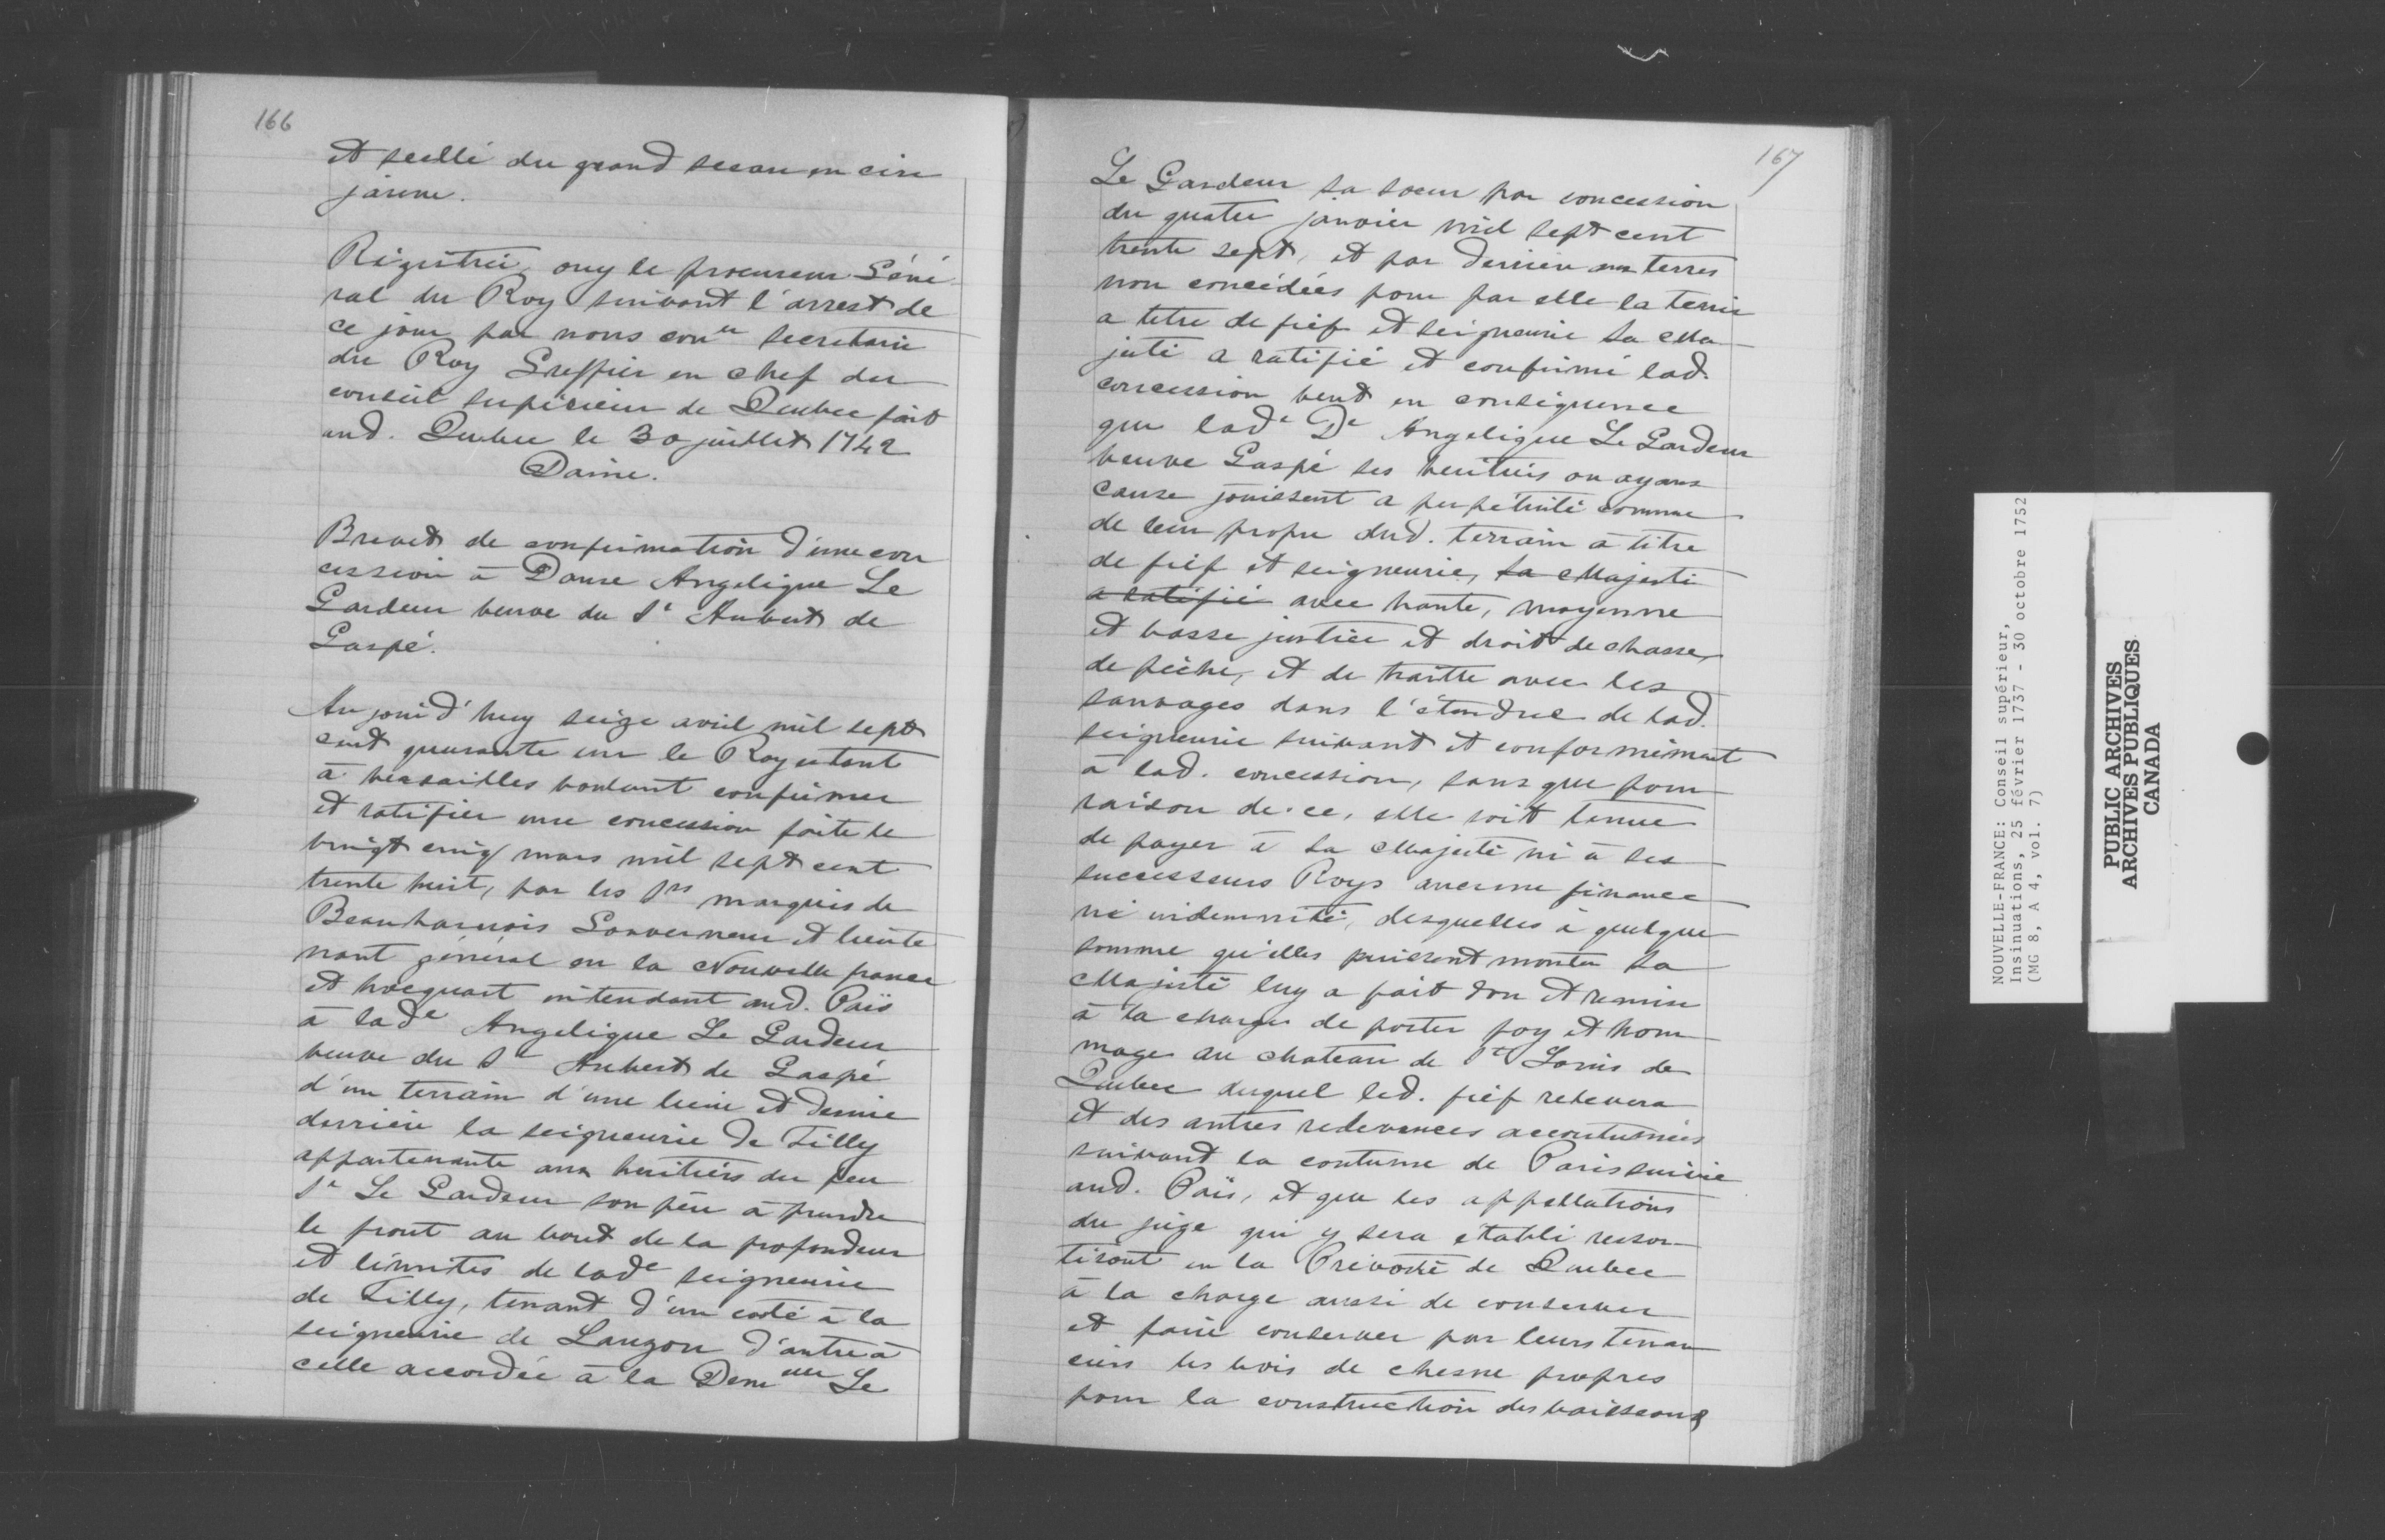 166
et scellé du grand sceau en cire
jaune.
Régistrée, ouy le procureur Géné
ral du Roy suivant l'arrest de
ce jour par nous con^er secretaire
du Roy Greffier en chef du
conseil supérieur de Quebec fait
aud. Quebec le 30 juillet 1742
Daine.
Brevet de confirmation d'une con
cession à Dame Angelique Le
Gardeur veuve du S^r Aubert de
Gaspé.
Aujourd'huy seize avril mil sept
cent quarante un le Roy etant
à versailles voulant confirmer
et ratifier une concession faite le
vingt cinq mars mil sept cent
trente huit, par les S^rs marquis de
Beauharnois Gouverneur et lieute
nant général en la Nouvelle france
et hocquart intendant aud. Païs
à lad^e Angelique Le Gardeur
veuve du S^r Aubert de Gaspé
d'un terrain d'une lieue et demie
derriere la seigneurie de Tilly
appartenante aux heritiers du feu
S^r Le Gardeur son père à prendre
le front au bout de la profondeur
et limites de lad^e seigneurie
de Tilly, tenant d'un coté à la
seigneurie de Lauzon d'autre à
celle accordée à la Dem^elle Le
167
Le Gardeur sa soeur par concession
du quatre janvier mil sept cent
trente sept, et par derriere aux terres
non concédées pour par elle la tenir
a titre de fief et seigneurie Sa Ma
jesté a ratifié et confirmé lad.
concession veut en conséquence
que lad^e D^e Angelique Le Gardeur
veuve Gaspé ses heritiers ou ayans
cause jouissent a perpétuité comme
de leur propre dud. terrain à titre
de fief et seigneurie, sa Majesté
a ratifié avec haute, moyenne
et basse justice et droit de chasse,
de pêche, et de traitte avec les
sauvages dans l'étendue de lad.
seigneurie suivant et conformément
à lad. concession, sans que pour
raison de ce, elle soit tenue
de payer à Sa Majesté ni à ses
successeurs Roys aucune finance
ni indemnité, desquelles à quelque
somme qu'elles puissent monter Sa
Majesté luy a fait don et remise
à la charge de porter foy et hom
mage au chateau de S^t Louis de
Quebec duquel led. fief relevera
et des autres redevances accoutumées
suivant la coutume de Paris suivie
aud. Païs, et que les appellations
du juge qui y sera établi ressor-
tiront en la Prévosté de Quebec
à la charge aussi de conserver
et faire conserver par leurs tenan
ciers les bois de chesne propres
pour la construction des vaisseaux
NOUVELLE-FRANCE: Conseil supérieur,
Insinuations, 25 février 1737 - 30 octobre 1752
(MG 8, A 4, vol. 7)
PUBLIC ARCHIVES
ARCHIVES PUBLIQUES
CANADA